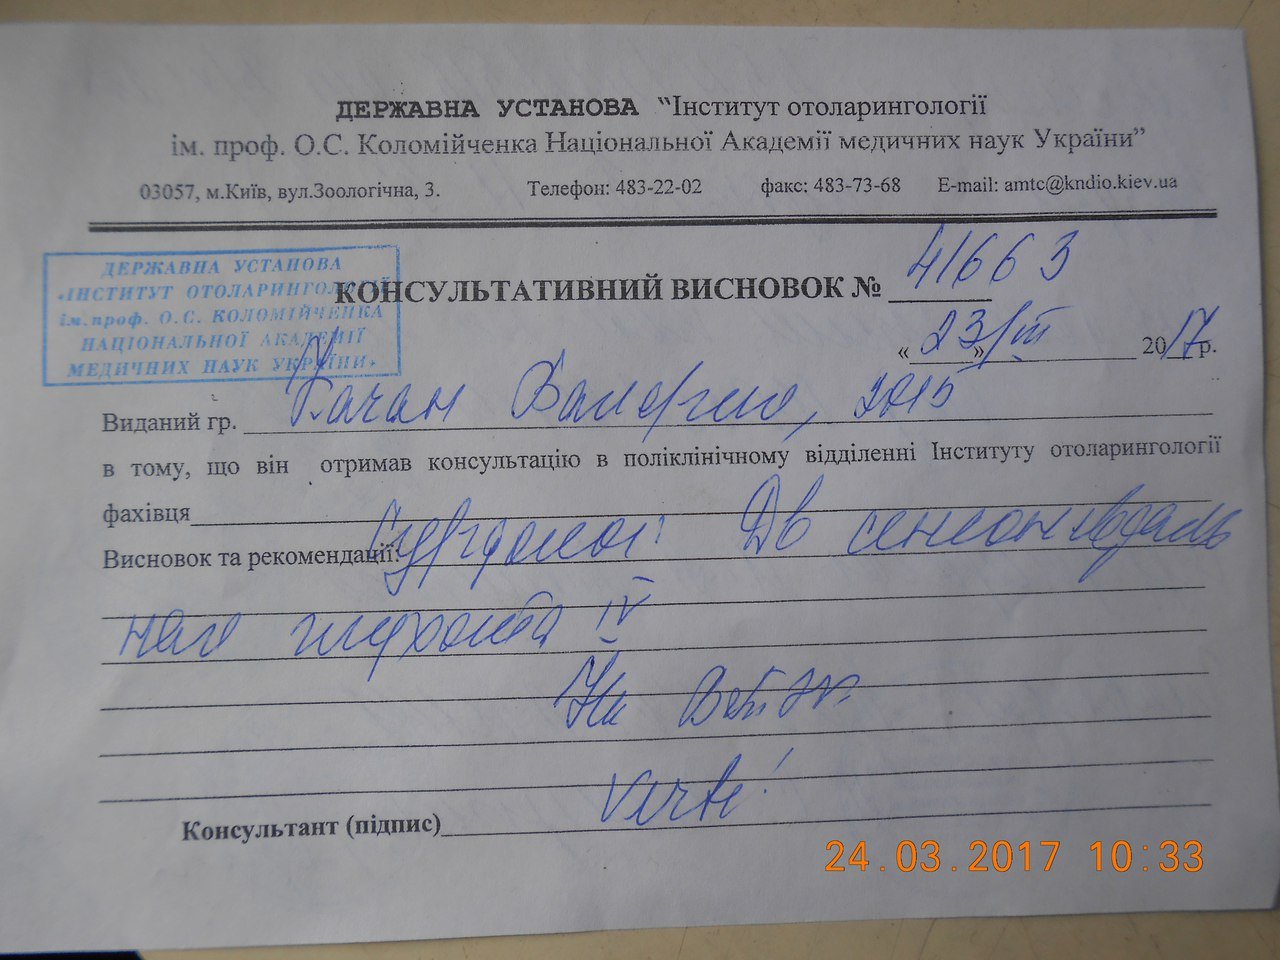 ДЕРЖАВНА УСТАНОВА “Інститут отоларингології
ім. проф. О.С. Коломійченка Національної Академії медичних наук України”
03057, м.Київ, вул.Зоологічна, 3. Телефон: 483-22-02 факс: 483-73-68 E-mail: amtc@kndio.kiev.ua
ДЕРЖАВНА УСТАНОВА
«ІНСТИТУТ ОТОЛАРИНГОЛОГІЇ
ім.проф. О.С. КОЛОМІЙЧЕНКА
НАЦІОНАЛЬНОЇ АКАДЕМІЇ
МЕДИЧНИХ НАУК УКРАЇНИ»
КОНСУЛЬТАТИВНИЙ ВИСНОВОК № 41663
«23» III 2017 р.
Виданий гр. Качан
в тому, що він отримав консультацію в поліклінічному відділенні Інституту отоларингології
фахівця
Висновок та рекомендації: Сурдолог: Дв сенсоневраль
на глухота IV
Verte!
Консультант (підпис)
24.03.2017 10:33